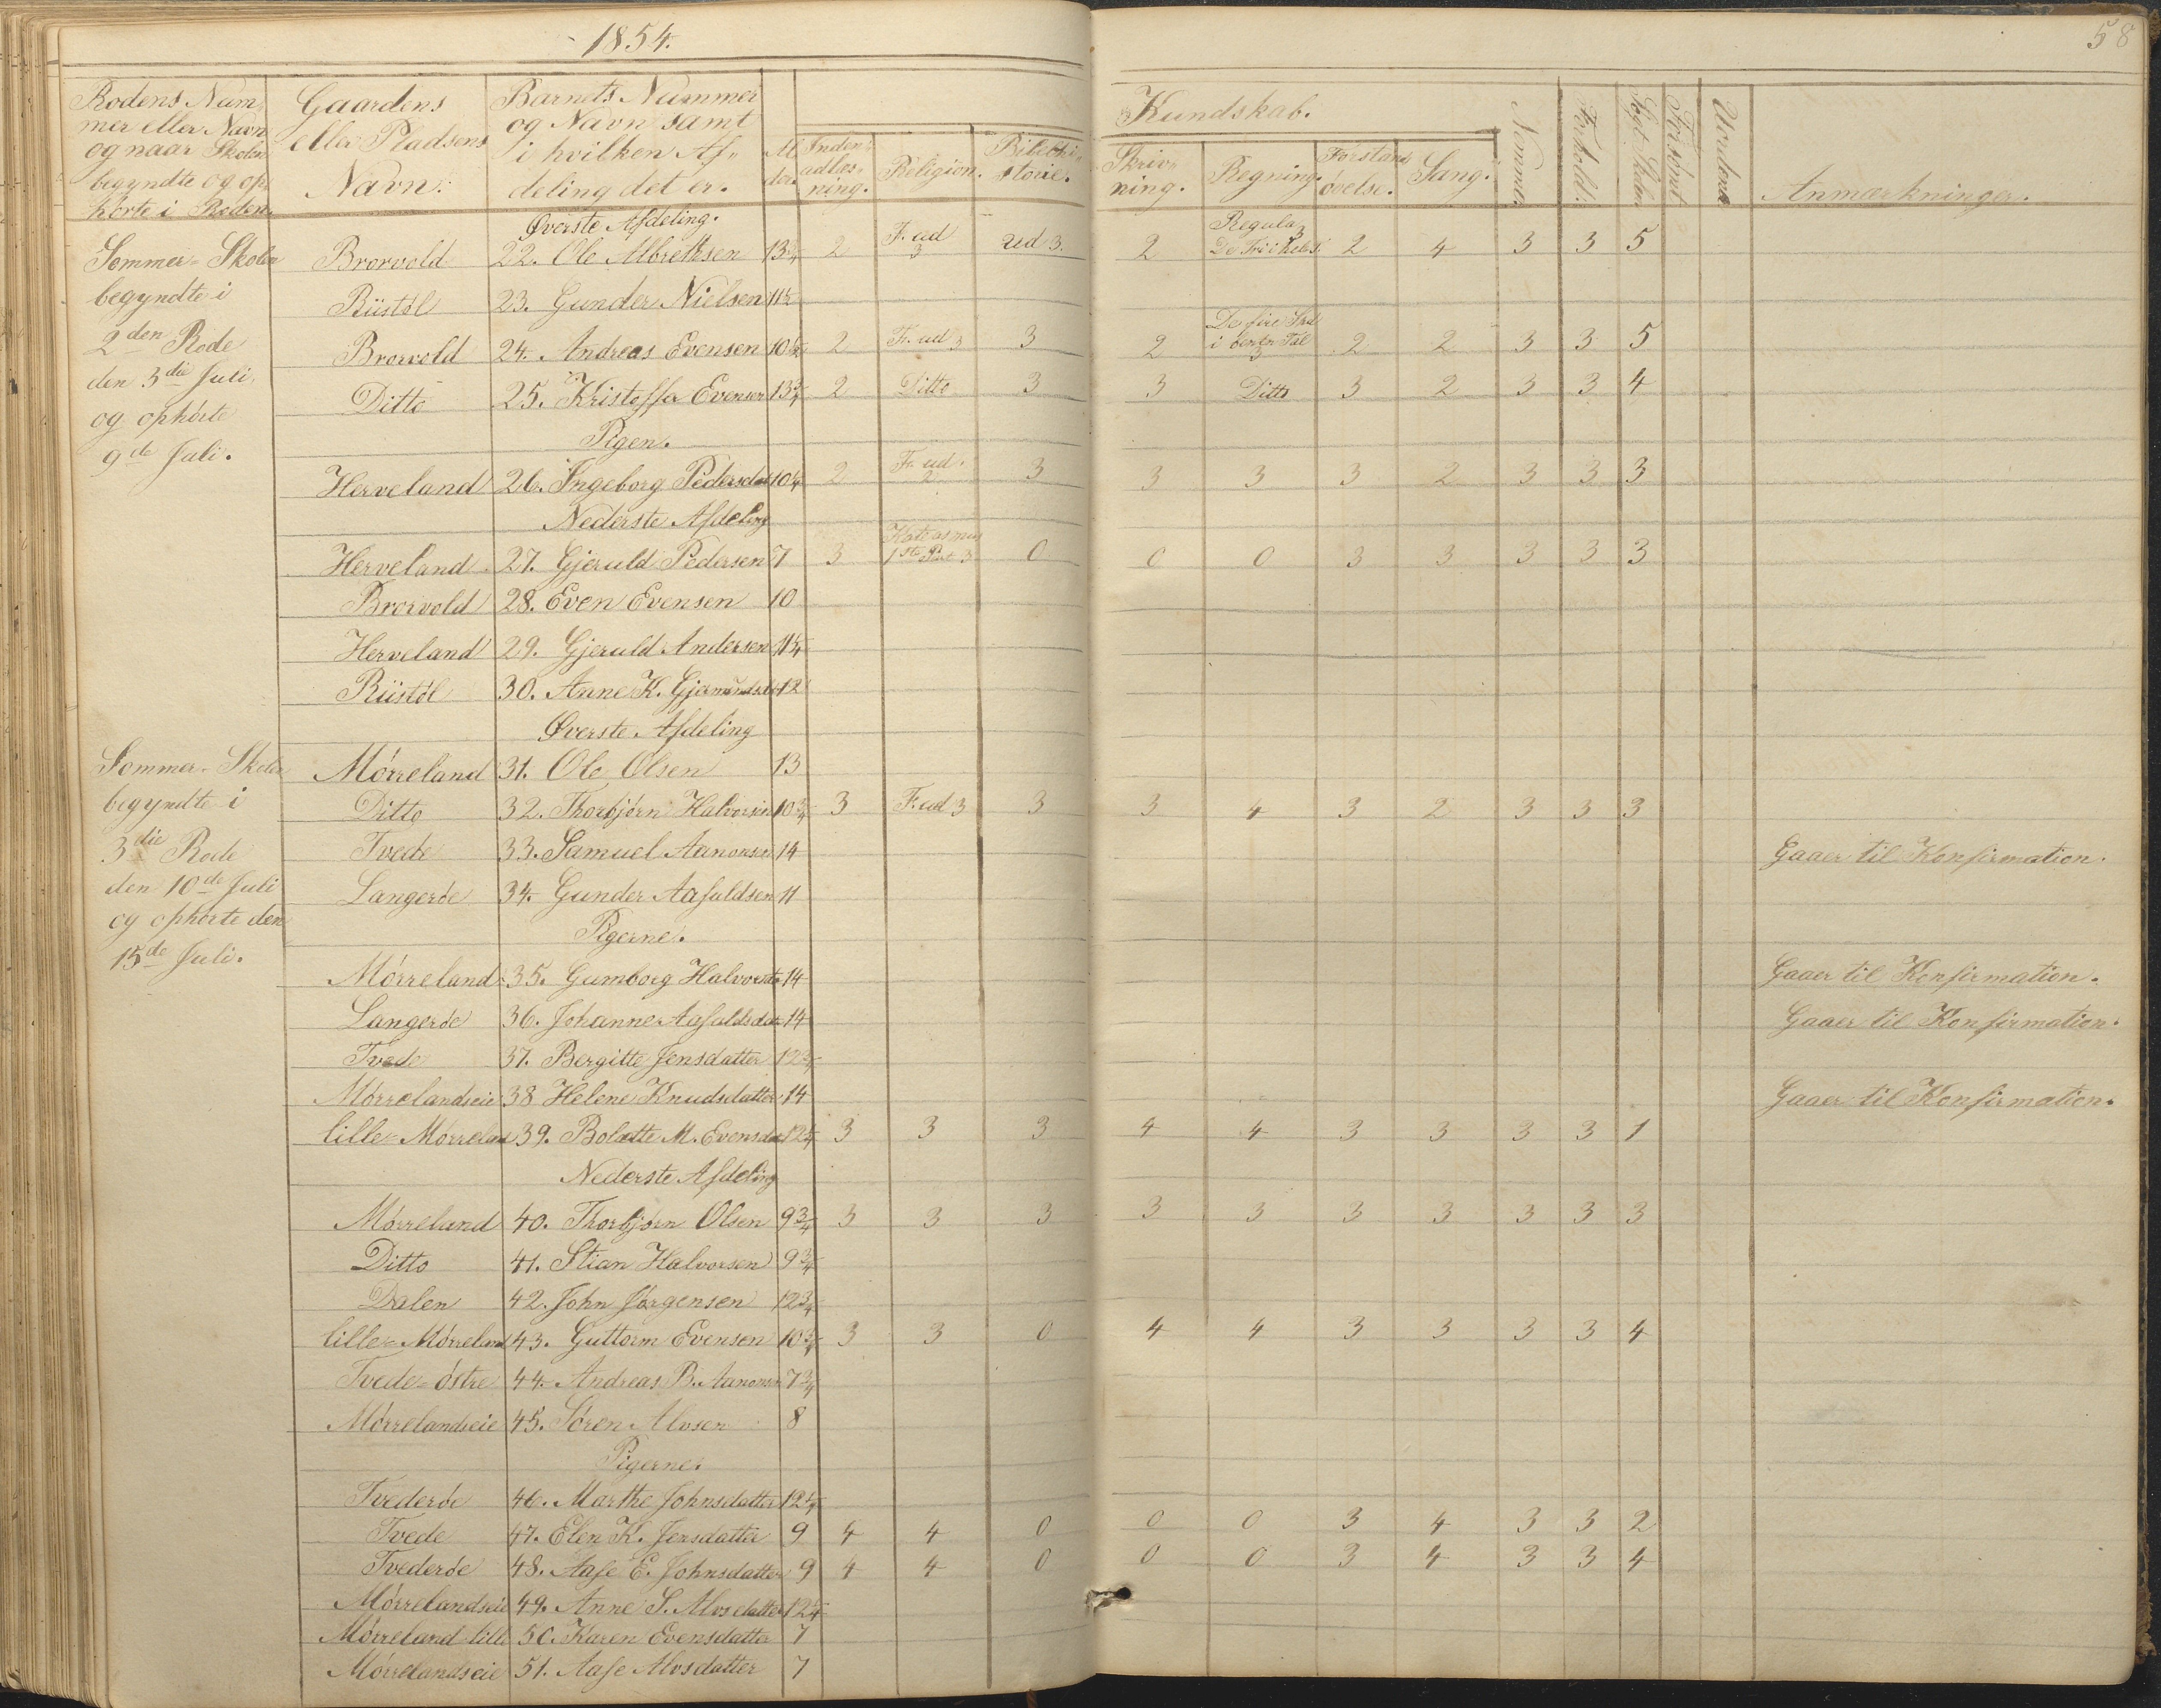 1854.
58
Rodens Num-
mer eller Navn
og naar Skolen
begyndte og op-
hørte i Roden.
Gaardens
eller Pladsens
Navn:
Barnets Nummer
og Navn samt
i hvilken Af-
deling det er.
Al
der.
Kundskab.
Inden-
adlæs-
ning.
Religion.
Bibelhi-
storie.
Skriv-
ning.
Regning.
Forstands
øvelse.
Sang.
Nemme.
Forhold.
Søgt Skolen
Forsømt
Vurderet
Anmærkninger.
Øverste Afdeling.
Sommer-Skolen
begyndte i
2den Rode
den 3die Juli,
og ophørte
9de Juli.
Brorvold 22. Ole Albrethsen 13 3/4 2 F. ud 3 ud 3. 2 Regula 3 De Tri 2 4 3 3 5
Riistøl 23. Gunder Nielsen 11 1/2
Brorvold 24. Andreas Evensen 10 1/2 2 F. ud 3 3 2 De fire i Tal 3 2 2 3 3 5
Ditto 25. Kristoffer Evensen 13 3/4 2 Ditto 3 3 Ditto 3 2 3 3 4
Pigen.
Herveland 26. Ingeborg Pedersdat 10 1/4 2 F. ud. 2 3 3 3 3 2 3 3 3
Nederste Afdeling
Herveland 27. Gjeruld Pedersen 7 3 1ste Part 3 0 0 0 3 3 3 3 3
Brorvold 28. Even Evensen 10
Herveland 29. Gjeruld Andersen 11 1/4
Riistøl 30. Anne K. Gjermundsdat 12
Øverste Afdeling
Sommer-Skolen
begyndte i
3die Rode
den 10de Juli
og ophørte den
15de Juli.
Mørreland 31. Ole Olsen 13
Ditto 32. Thorbjørn Halvorsen 10 3/4 3 F. ud 3 3 3 4 3 2 3 3 3
Tvede 33. Samuel Aanonsen 14 Gaaer til Konfirmation.
Langerøe 34. Gunder Aasuldsen 11
Pigerne.
Mørreland 35. Gumborg Halvorsdtr 14 Gaaer til Konfirmation.
Langerøe 36. Johanne Aasuldsdatr 14 Gaaer til Konfirmation.
Tvede 37. Bergitte Jensdatter 12 3/4
Mørrelandseie 38 Helene Knudsdatter 14 Gaaer til Konfirmation.
lille-Mørreland 39. Bolette M. Evensdat 12 1/4 3 3 3 4 4 3 3 3 3 1
Nederste Afdeling
Mørreland 40. Thorbjørn Olsen 9 3/4 3 3 3 3 3 3 3 3 3 3
Ditto 41. Stian Halvorsen 9 3/4
Dalen 42. John Jørgensen 12 3/4
lille-Mørreland 43. Guttorm Evensen 10 3/4 3 3 0 4 4 3 3 3 3 4
Tvede-østre 44. Andreas B. Aanonsen 7 3/4
Mørrelandseie 45. Søren Alvsen 8
Pigerne.
Tvederøe 46. Marthe Johnsdatter 12 1/4
Tvede 47. Elen K. Jensdatter 9 4 4 0 0 0 3 4 3 3 2
Tvederøe 48. Aase E. Johnsdatter 9 4 4 0 0 0 3 4 3 3 4
Mørrelandseie 49. Anne S. Alvsdatter 12 1/4
Mørreland-lille 50. Karen Evensdatter 7
Mørrelandseie 51. Aase Alvsdatter 7